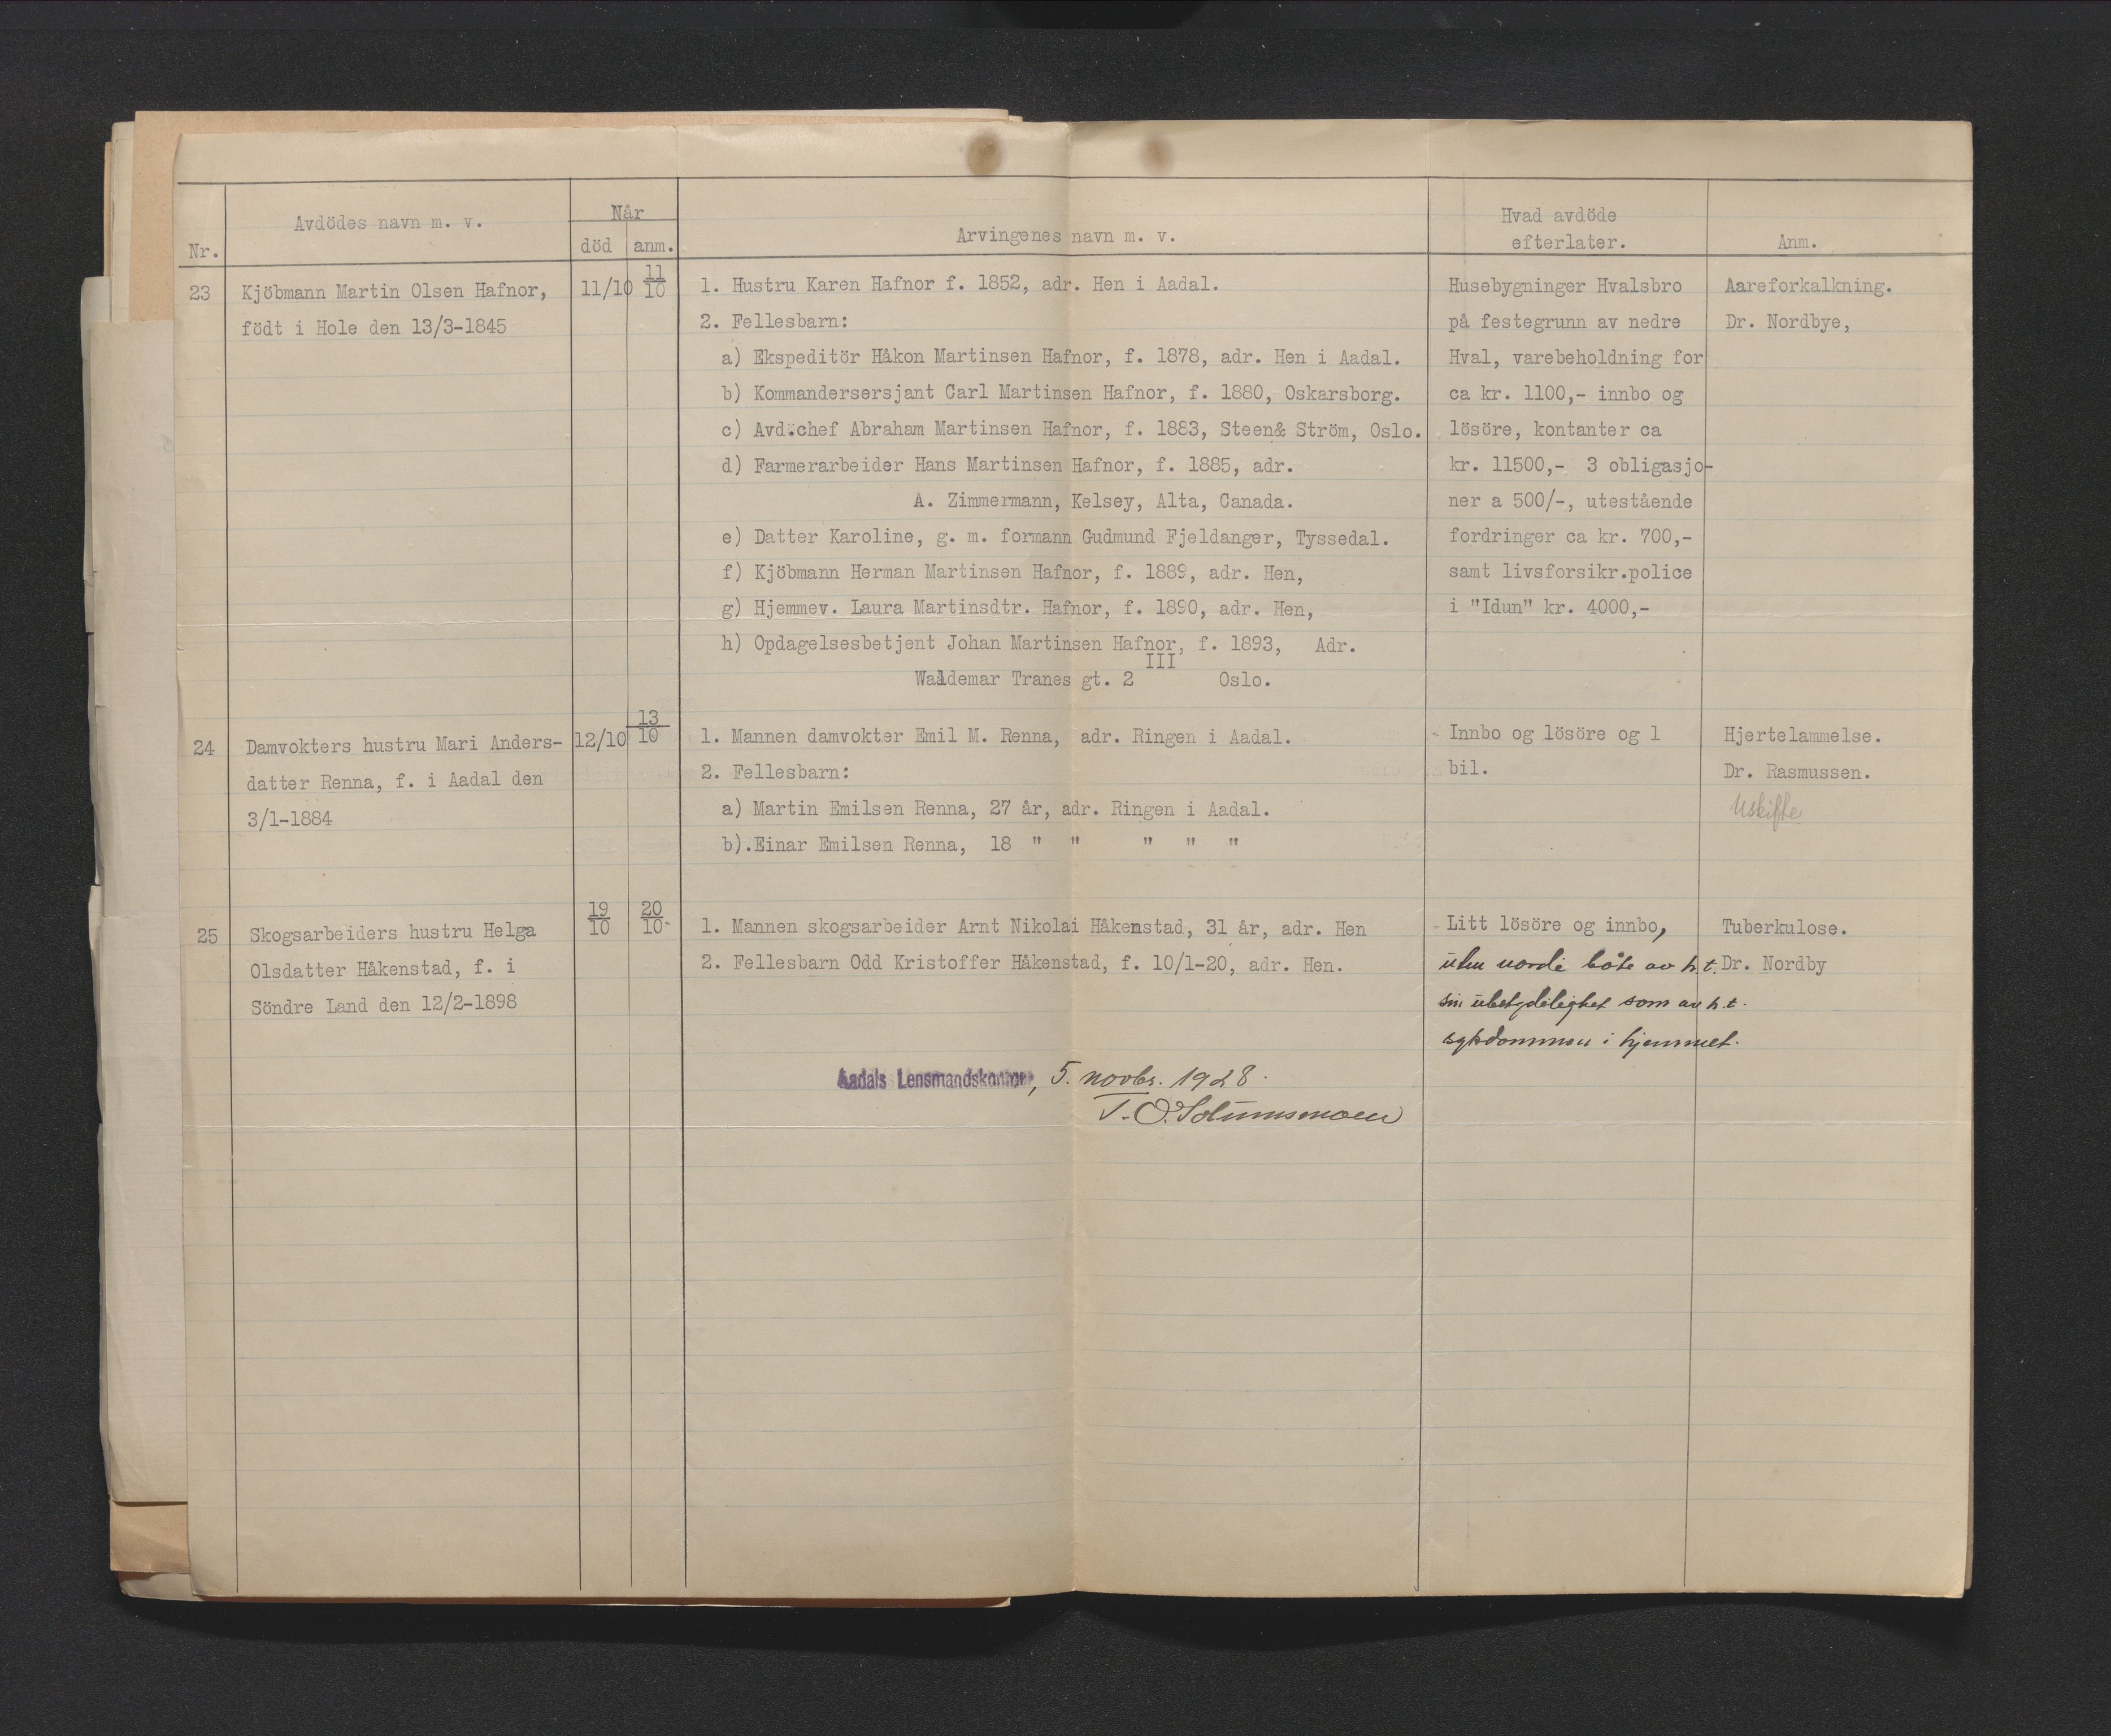 Nr.
Avdödes navn m. v.
Når
död anm.
Arvingenes navn m. v.
Hvad avdöde
efterlater.
Anm.
23
Kjöbmann Martin Olsen Hafnor,
födt i Hole den 13/3-1845
11/10
11/10
1. Hustru Karen Hafnor f. 1852, adr. Hen i Aadal.
2. Fellesbarn:
a) Ekspeditör Håkon Martinsen Hafnor, f. 1878, adr. Hen i Aadal.
b) Kommandersersjant Carl Martinsen Hafnor, f. 1880, Oskarsborg.
c) Avd.chef Abraham Martinsen Hafnor, f. 1883, Steen& Ström, Oslo.
d) Farmerarbeider Hans Martinsen Hafnor, f. 1885, adr.
A. Zimmermann, Kelsey, Alta, Canada.
e) Datter Karoline, g. m. formann Gudmund Fjeldanger, Tyssedal.
f) Kjöbmann Herman Martinsen Hafnor, f. 1889, adr. Hen,
g) Hjemmev. Laura Martinsdtr. Hafnor, f. 1890, adr. Hen,
h) Opdagelsesbetjent Johan Martinsen Hafnor, f. 1893, Adr.
Waldemar Tranes gt. 2 III Oslo.
Husebygninger Hvalsbro
på festegrunn av nedre
Hval, varebeholdning for
ca kr. 1100,- innbo og
lösöre, kontanter ca
kr. 11500,- 3 obligasjo-
ner a 500/-, utestående
fordringer ca kr. 700,-
samt livsforsikr.police
i "Idun" kr. 4000,-
Aareforkalkning.
Dr. Nordbye,
24
Damvokters hustru Mari Anders-
datter Renna, f. i Aadal den
3/1-1884
12/10
13/10
1. Mannen damvokter Emil M. Renna, adr. Ringen i Aadal.
2. Fellesbarn:
a) Martin Emilsen Renna, 27 år, adr. Ringen i Aadal.
b).Einar Emilsen Renna, 18 " " " " "
Innbo og lösöre og 1
bil.
Hjertelammelse.
Dr. Rasmussen.
Uskifte
25
Skogsarbeiders hustru Helga
Olsdatter Håkenstad, f. i
Söndre Land den 12/2-1898
19/10
20/10-
1. Mannen skogsarbeider Arnt Nikolai Håkenstad, 31 år, adr. Hen
2. Fellesbarn Odd Kristoffer Håkenstad, f. 10/1-20, adr. Hen.
Litt lösöre og innbo,
uten verdi både av h.t.
sin ubetydelighet som av h.t.
sykdommen i hjemmet.
Tuberkulose.
Dr. Nordby
Aadals Lensmandskontor, 5. novbr. 1928.
T. O. Solumsmoen